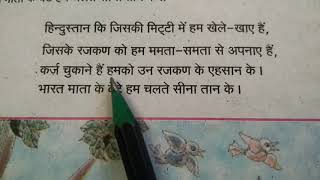 हिन्दुस्तान कि जिसकी मिट्टी में हम खेले-खाए हैं,
जिसके रजकण को हम ममता-समता से अपनाए हैं,
कर्ज़ चुकाने हैं हमको उन रजकण के एहसान के ।
भारत माता के बेटे हम चलते सीना तान के ।